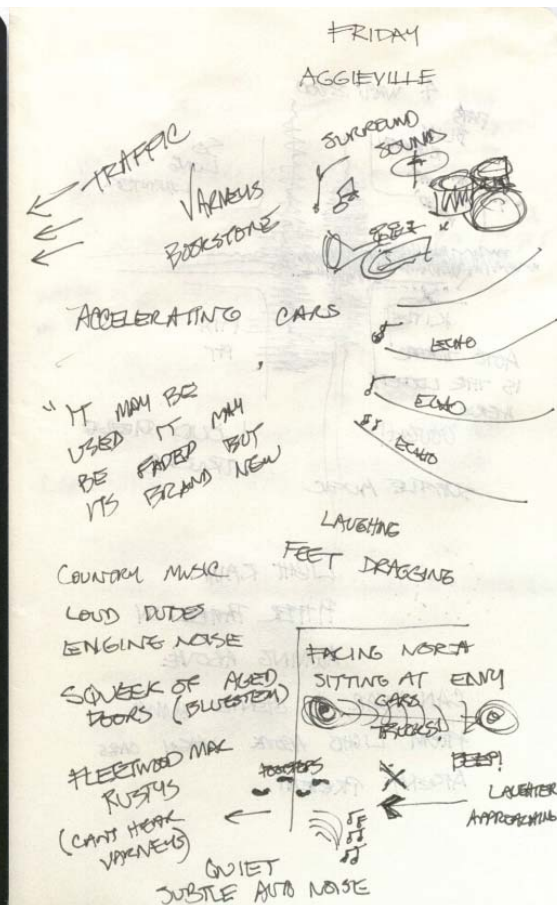 FRIDAY
AGGIEVILLE
SURROUND
SOUNDS
TRAFFIC
VARNEYS
BOOKSTORE
ACCELERATING CARS
ECHO
ECHO
ECHO
"IT MAY BE
USED IT MAY
BE FADED BUT
ITS BRAND NEW
LAUGHING
FEET DRAGGING
COUNTRY MUSIC
LOUD DUDES
ENGINE NOISE
SQUEEK OF AGED
DOORS (BLUESTEM)
FLEETWOOD MAC
RUSTYS
(CANT HEAR
VARNEYS)
FACING NORTH
SITTING AT ENTRY
CARS
TRUCKS!
BEEP!
FOOTSTEPS
LAUGHTER
APPROACHING
QUIET
SUBTLE AUTO NOISE